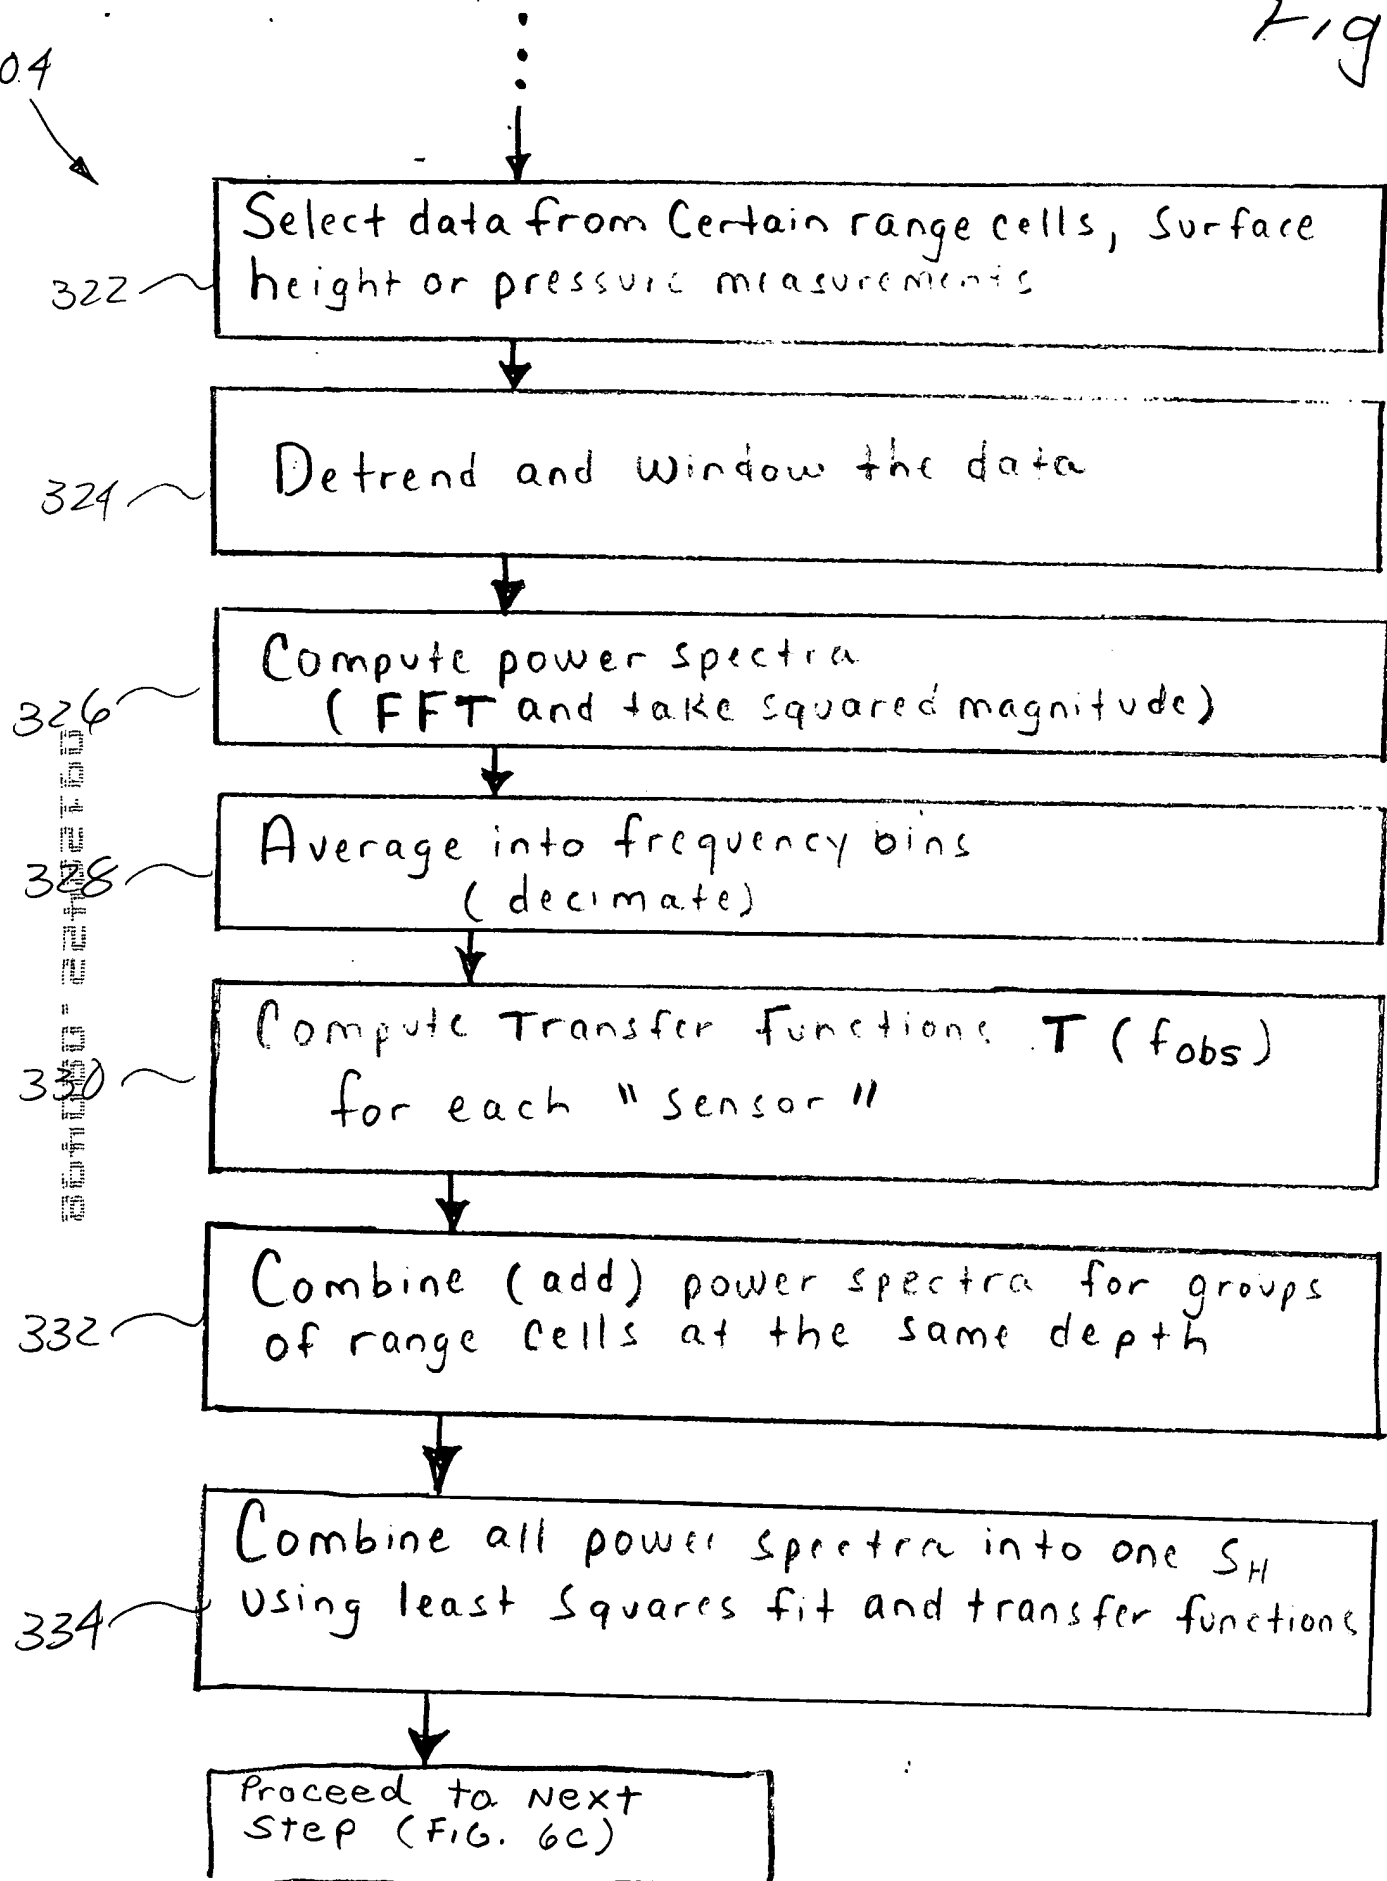 Fig
04
Select data from Certain range cells, Surface
322
height or pressure measurements
324
Detrend and window the data
Compute power spectra
326
(FFT and take squared magnitude)
Average into frequency bins
328
(decimate)
Compute Transfer Functions T (fobs)
330
for each "sensor"
Combine (add) power spectra for groups
332
of range cells at the same depth
Combine all power spectra into one SH
334
using least squares fit and transfer functions
Proceed to Next
Step (FIG. 6C)